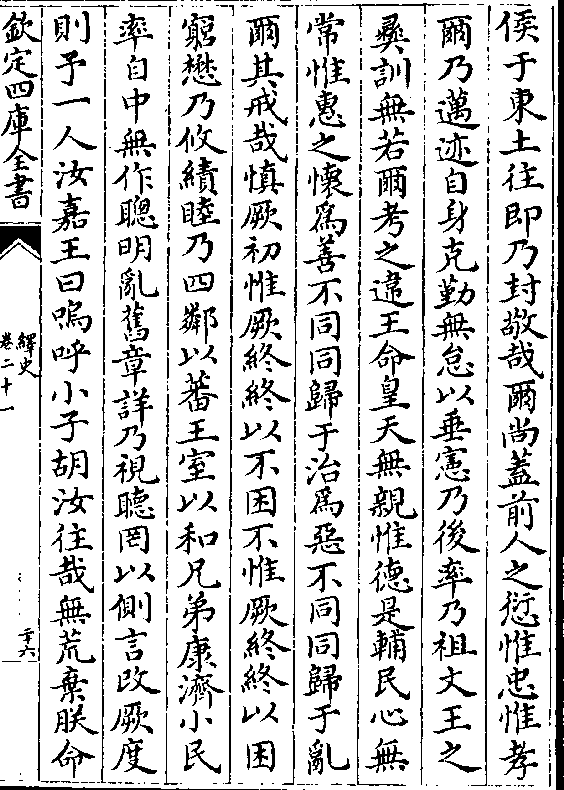 侯于東土往即乃封敬哉爾尚蓋前人之愆惟忠惟孝
爾乃邁迹自身克勤無怠以垂憲乃後率乃祖文王之
彝訓無若爾考之違王命皇天無親惟德是輔民心無
常惟惠之懷為善不同同歸于治為惡不同同歸于亂
爾其戒哉慎厥初惟厥終終以不困不惟厥終終以困
窮懋乃攸績睦乃四鄰以蕃王室以和兄弟康濟小民
率自中無作聰明亂舊章詳乃視聽罔以側言改厥度
則予一人汝嘉王曰嗚呼小子胡汝往哉無荒棄朕命
欽定四庫全書
繹史
卷二十一
二十六